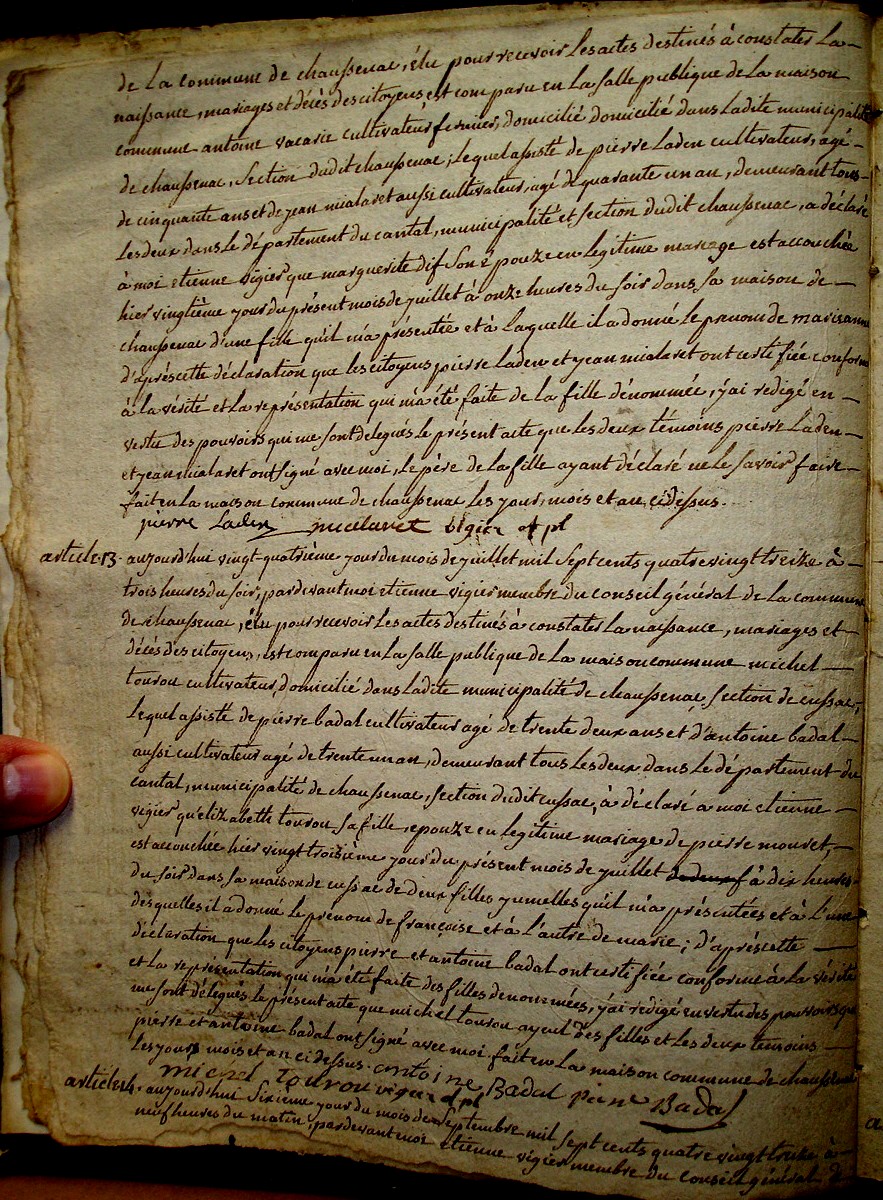 de La commune de chaussenac, élu pour recevoir Les actes destinés à constater La
naissance, mariages et décès des citoyens, est comparu en La salle publique de La maison
commune antoine vacarie cultivateur fermier, domicilié domicilié dans Ladite municipalité
de chaussenac, Section dudit chaussenac, Lequel assisté de pierre Laden cultivateur, agé
de cinquante ans et de jean mialaret aussi cultivateur, agé de quarante un an, demeurant tous
Les deux dans Le département du cantal, municipalité et section dudit chaussenac, a déclaré
à moi etienne vigier que marguerite dif Son epouze en Legitime mariage est accouchée
hier vingtième jour du présent mois de juillet à onze heures du soir dans sa maison de
chaussenac d'une fille qu'il m'a présentée et à Laquelle il a donné Le prenom de marieanne
d'après cette déclaration que Les citoyens pierre Laden et jean mialaret ont certifiée conforme
à La vérité et La représentation qui m'a été faite de La fille dénommée, j'ai redigé en
vertu des pouvoirs qui me sont délegués Le présent acte que Les deux témoins pierre Laden
et jean mialaret ont signé avec moi, Le père de La fille ayant déclaré ne Le savoir faire
fait en La maison commune de chaussenac Les jour, mois et an cidessus.
pierre Laden mialaret vigier of pl
article 13. aujourd'hui vingt quatrième jour du mois de juillet mil Sept cents quatre vingt treize à
trois heures du soir, pardevant moi etienne vigier membre du conseil général de La commune
de chaussenac, élu pour recevoir Les actes destinés à constater La naissance, mariages et
décès des citoyens, est comparu en La salle publique de La maison commune michel
tourou cultivateur, domicilié dans Ladite municipalité de chaussenac, section de cussac,
Lequel assisté de pierre badal cultivateur agé de trente deux ans et d'antoine badal
aussi cultivateur agé de trente un an, demeurant tous Les deux dans Le département du
cantal, municipalité de chaussenac, section dudit cussac, à déclaré a moi etienne
vigier qu'elizabeth tourou sa fille, epouze en Legitime mariage de pierre mouret,
est accouchée hier vingt troisième jour du présent mois de juillet à dix heures
du soir dans sa maison de cussac de deux filles jumelles qu'il m'a présentées et à L'une
desquelles il a donné Le prenom de françoise et à L'autre de marie; d'après cette
déclaration que Les citoyens pierre et antoine badal ont certifiée conforme à La vérité
et La représentation qui m'a été faite des filles denommées, j'ai redigé en vertu des pouvoirs qui
me sont délegués Le présent acte que michel tourou ayeul des filles et Les deux temoins
pierre et antoine badal ont signé avec moi fait en La maison commune de chaussenac
Les jour mois et an cidessus.
michel tourou vigier of pl antoine Badal pierre Badal
article 14. aujourd'hui Sixieme jour du mois de Septembre mil sept cents quatre vingt treize à
neuf heures du matin, pardevant moi etienne vigier membre du conseil général de